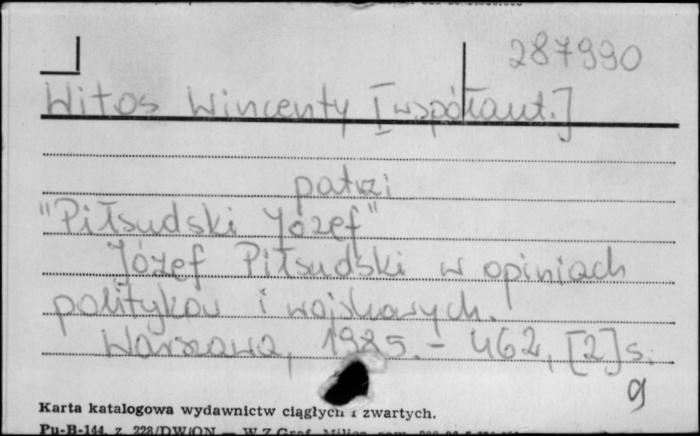 287990
Witos Wincenty [współaut.]
patrz:
"Piłsudski Józef"
Józef Piłsudski w opiniach
polityków i wojskowych.
Warszawa, 1985. - 462, [2] s.
g
Karta katalogowa wydawnictw ciągłych i zwartych.
Pu-B-144, z. 228/DW/ON — W.Z.Graf.